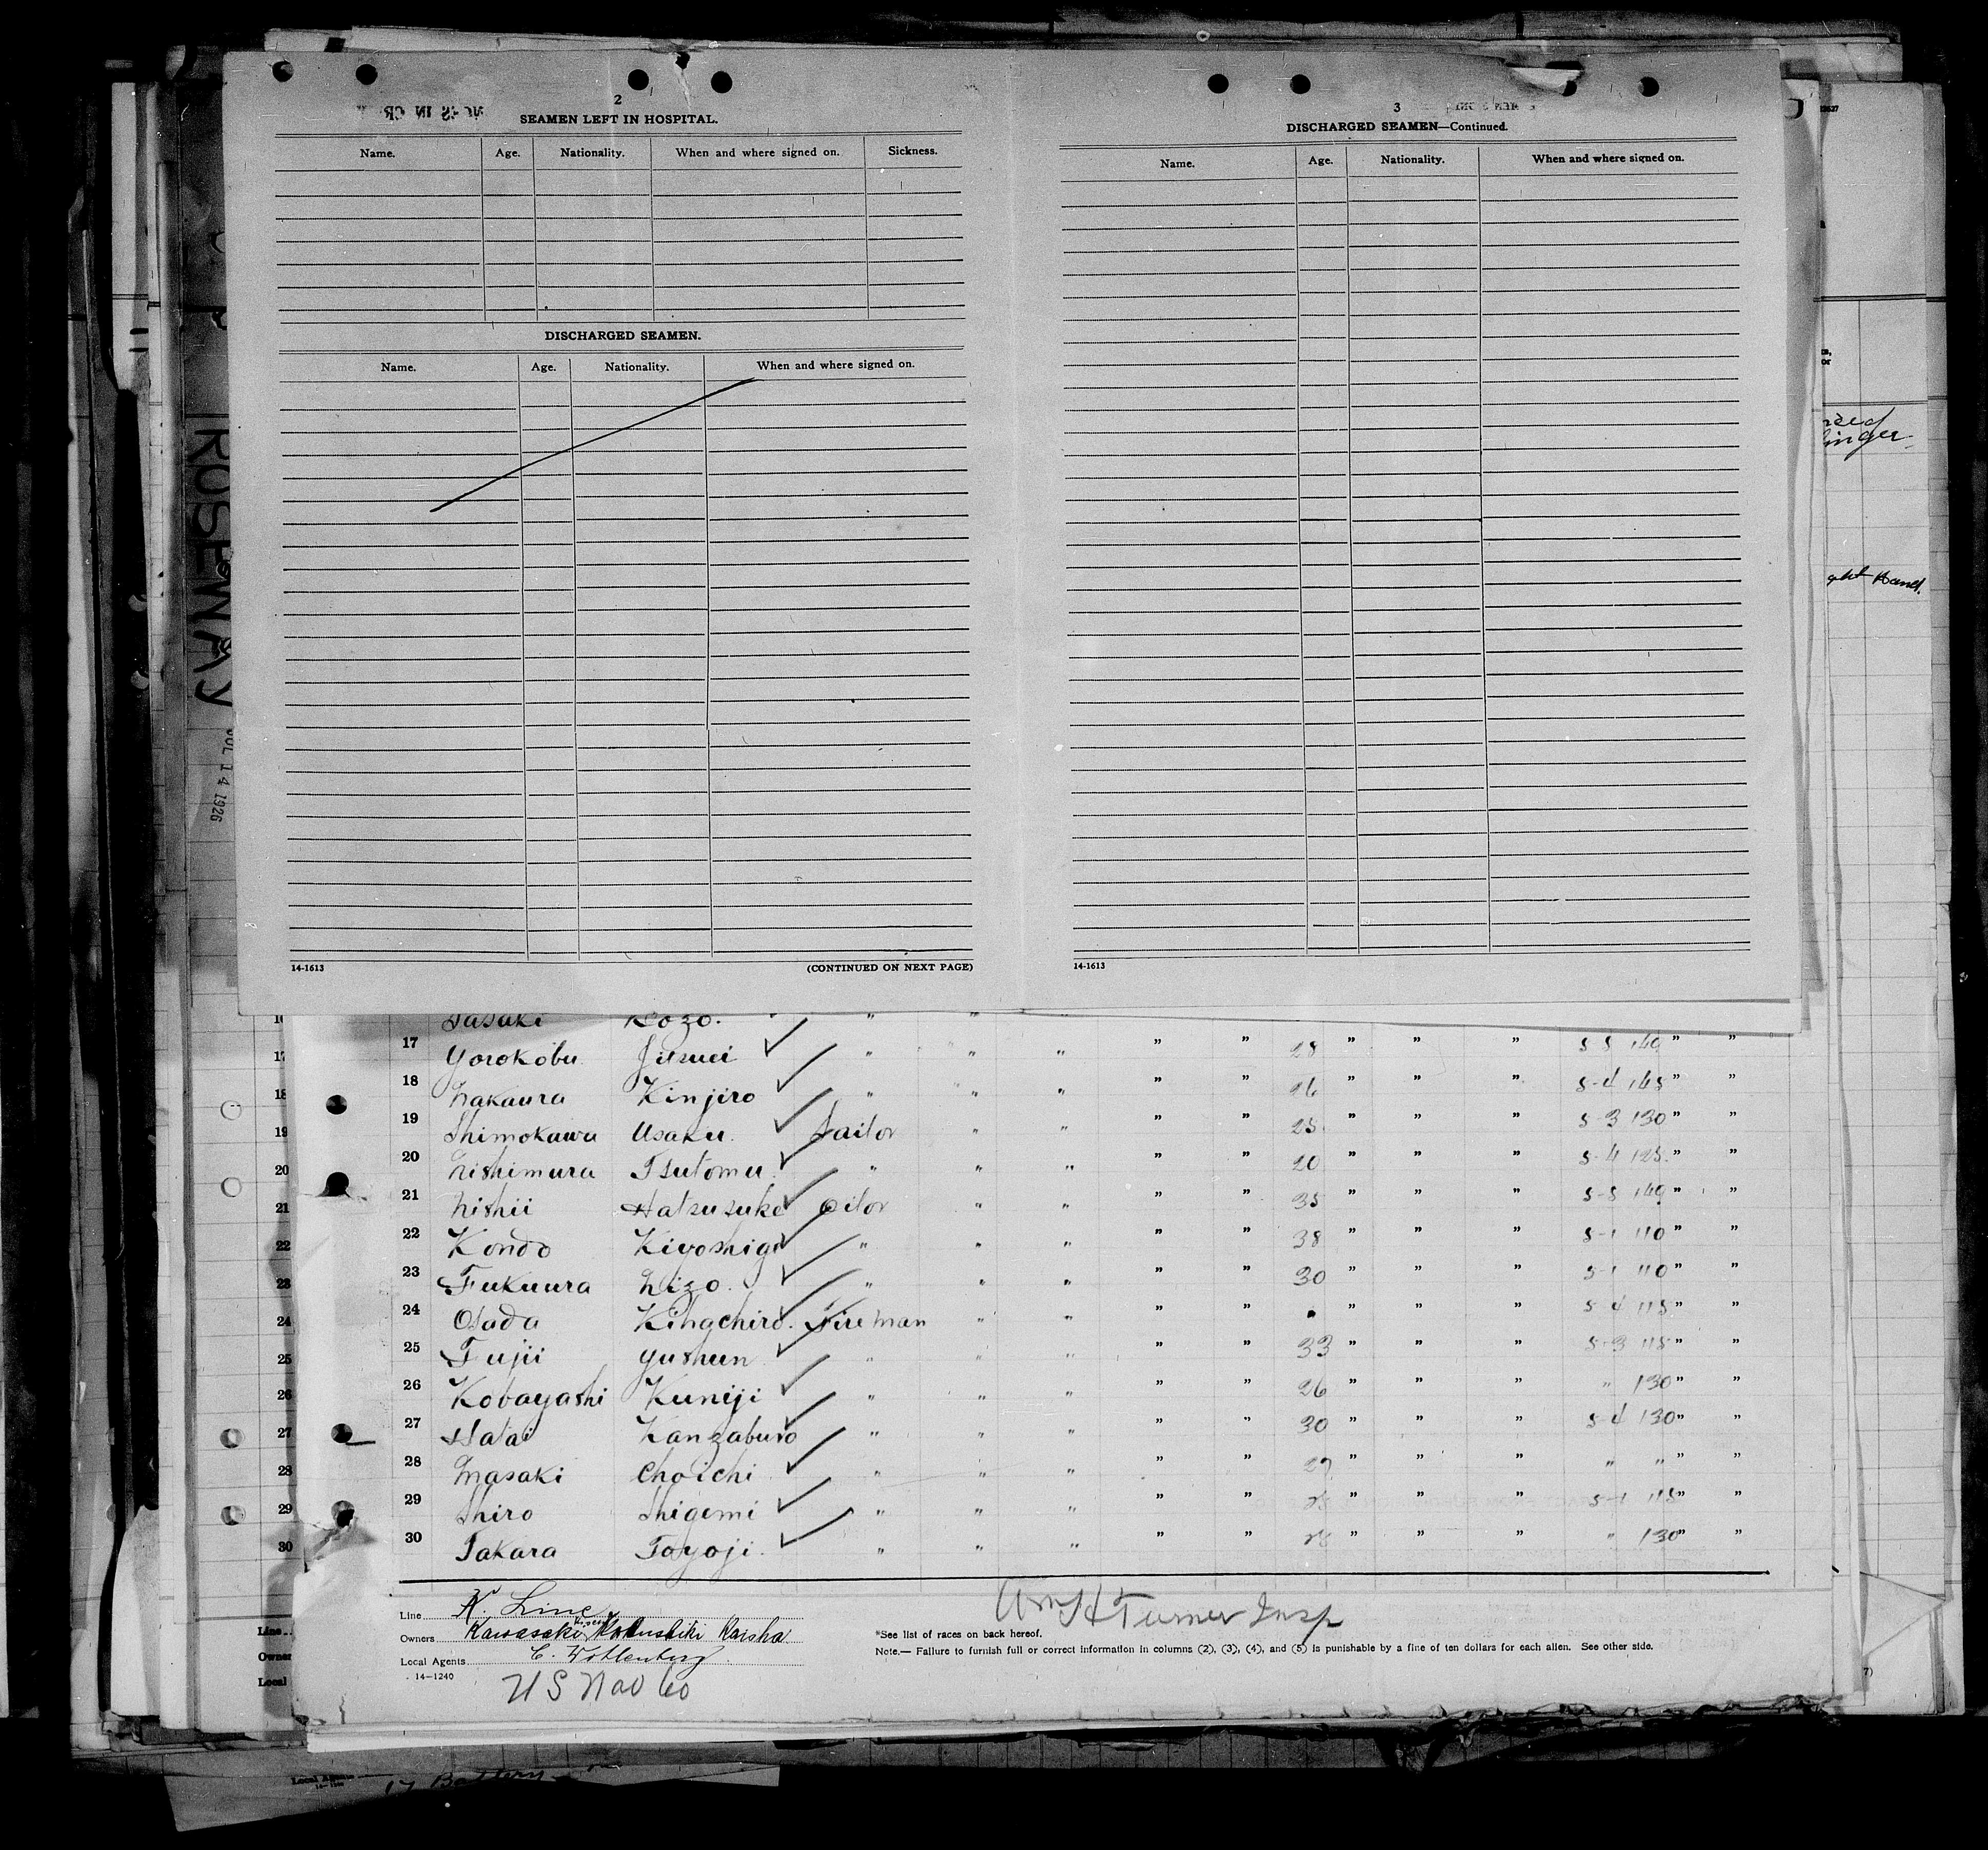 2
SEAMEN LEFT IN HOSPITAL.
Name. Age. Nationality. When and where signed on. Sickness.
DISCHARGED SEAMEN.
Name. Age. Nationality. When and where signed on.
14-1613 (CONTINUED ON NEXT PAGE)
3
DISCHARGED SEAMEN—Continued.
Name. Age. Nationality. When and where signed on.
14-1613
ROSEWAY
JUL 14 1926
Sasaki Kozo. " " "
17 Yorokobu Jitsuei " " " " " 28 " " " 5 5 140 " "
18 Nakaura Kinjiro " " " " " 26 " " " 5-4 145 " "
19 Shimokawa Usaku. Sailor " " " " 25 " " " 5-3 130 " "
20 Nishimura Tsutomu. " " " " " 20 " " " 5-4 125. " "
21 Nishii Hatsusuke Oilor " " " " 35 " " " 5-5 140 " "
22 Kondo Kiyoshige " " " " " 38 " " " 5-1 110 " "
23 Fukuura Nizo. " " " " " 30 " " " 5-1 110 " "
24 Osada Kihachiro. Fireman " " " " " " " 5 4 115 " "
25 Fujii Yushun " " " " " 33 " " " 5-3 115 " "
26 Kobayashi Kuniji " " " " " 26 " " " " 130 " "
27 Hatai Kanzaburo " " " " " 30 " " " 5-4 130 " "
28 Masaki Choichi " " " " " 27 " " " " " " "
29 Shiro Shigemi " " " " " " " " 5-1 115 " "
30 Takara Toyoji. " " " " " " " " " 130 " "
Line K. Line
Owners Kawasaki Kisen Kabushiki Kaisha
Local Agents C. Wohlenberg
14-1240
U S Nav Co
Wm H Turner Insp
*See list of races on back hereof.
Note.— Failure to furnish full or correct information in columns (2), (3), (4), and (5) is punishable by a fine of ten dollars for each alien. See other side.
16
17
18
19
20
21
22
23
24
25
26
27
28
29
30
Line
Owner
Local
Hand.
Local Agents
17 Battery